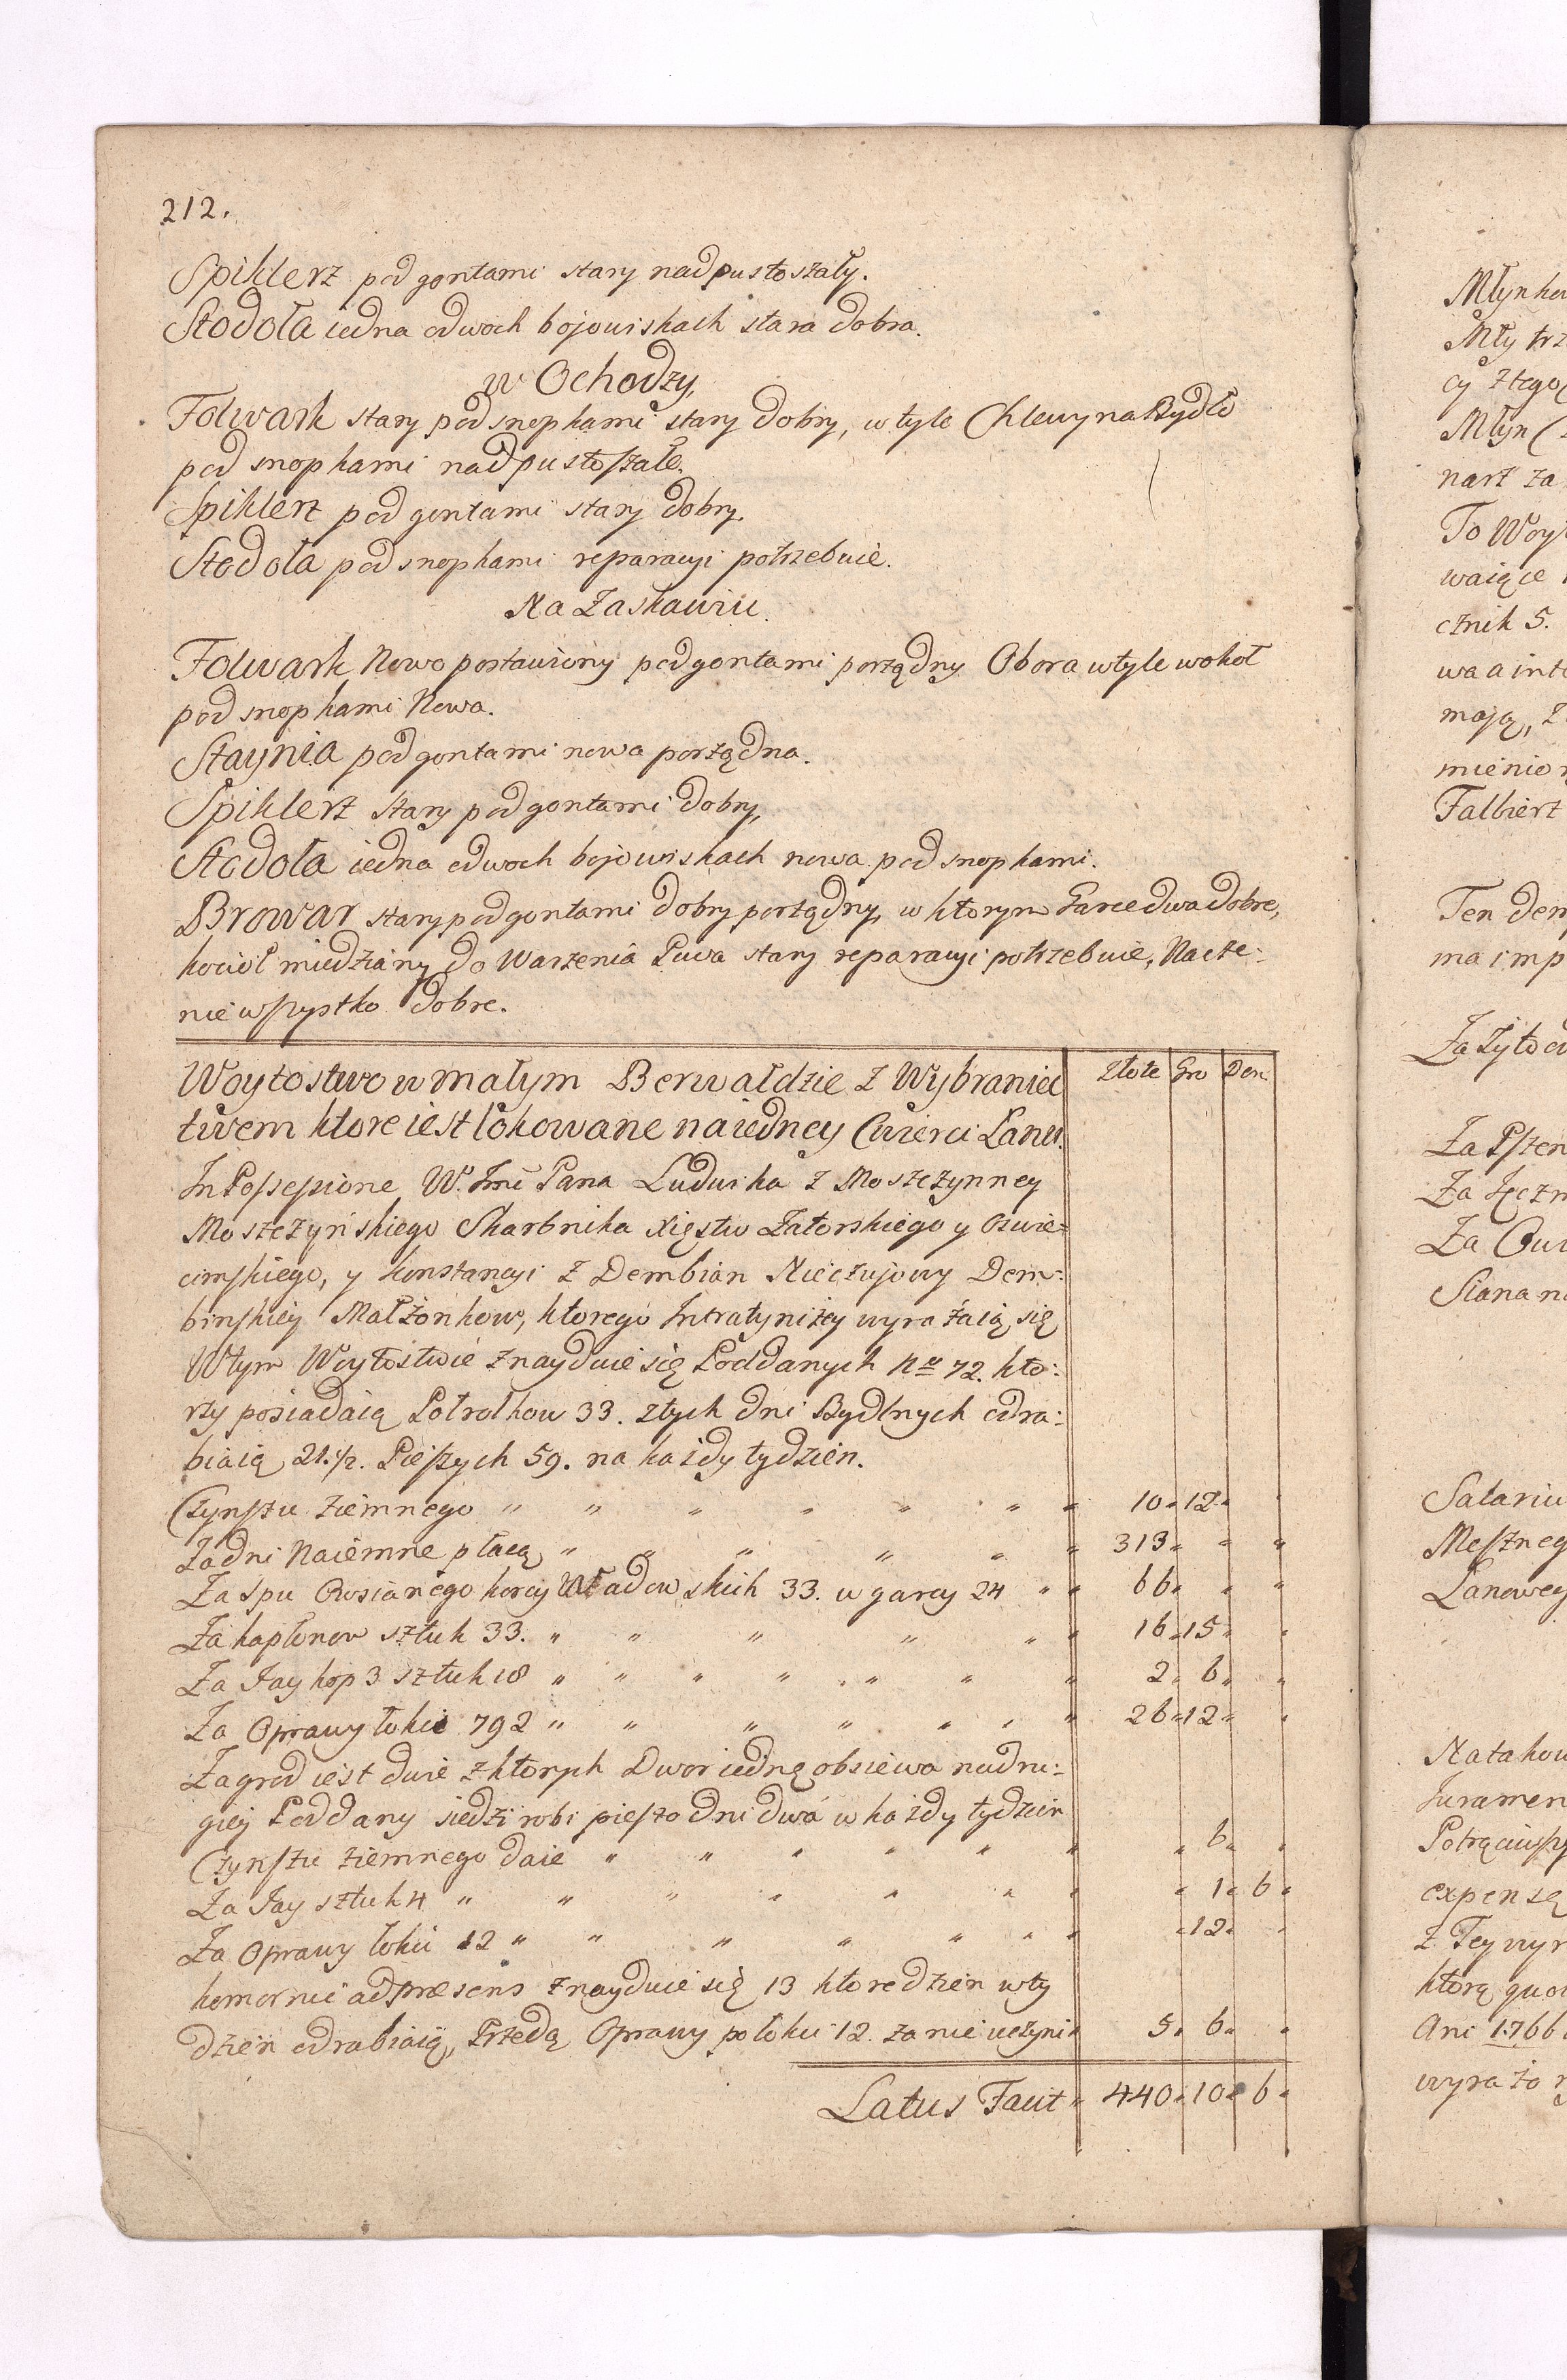 212.
Spiklerz pod gontami stary nadpustoszały.
Stodoła iedna odwoch bojowiskach stara dobra.
w Ochodzy,
Folwark stary pod snopkami stary dobry, w tyle Chlewy na Bydło
pod snopkami nadpustoszałe.
Spiklerz pod gontami stary dobry.
Stodoła pod snopkami reparacyi potrzebuie.
Na Zaskawiu.
Folwark Nowo postawiony pod gontami porządny Obora w tyle wokoł
pod snopkami Nowa.
Staynia pod gontami nowa porządna.
Spiklerz stary pod gontami dobry,
Stodoła iedna odwoch bojowiskach nowa pod snopkami.
Browar stary pod gontami dobry porządny, w ktorym Garce dwa dobre,
kocioł miedziany do Warzenia Piwa stary reparacyi potrzebuie, Nacze:
nie wszystko dobre.
Woytostwo w małym Berwałdzie z Wybraniec Złote Gro Den
twem ktore iest lokowane na iedney Cwierci Łanu.
In Possessione W. Jmć Pana Ludwika z Moszczynney
Moszczyńskiego Skarbnika Xięstw Zatorskiego y Oswie=
cimskiego, y Konstancyi z Dembian Nieczujowy Dem=
binskiey Małżonkow, ktorego Intraty niżey wyrażaią się
W tym Woytostwie znayduie się Poddanych Nro 72. kto:
rzy posiadaią Połrolkow 33. z tych dni Bydlnych odra:
biaią 21.1/2. Pieszych 59. na każdy tydzien.
Czynszu ziemnego " " " " " " " 10 " 12 " "
Za dni Naiemne płacą " " " " " " 313 " " "
Za spu Owsianego korcy Wadowskich 33. w garcy 24 " " 66 " " "
Za kapłonow sztuk 33. " " " " " " 16 " 15 " "
Za Jay kop 3 sztuk 18 " " " " " " " 2 " 6 " "
Za Oprawy łokci 792 " " " " " " " 26 " 12 " "
Zagrod iest dwie z ktorych Dwor iednę obsiewa na dru:
giey Poddany siedzi robi pieszo dni dwa w każdy tydzien
Czynszu ziemnego daie " " " " " " " 6 " "
Za Jay sztuk 4 " " " " " " " " 1 " 6 "
Za Oprawy łokci 12 " " " " " " " " 12 " "
komornic ad præsens znayduie się 13 ktore dzien w ty
dzien odrabiaią, Przedą Oprawy po łokci 12. za nie uczyni " 5 " 6 " "
Latus Facit " 440 " 10 " 6 "
Młynko
Mły trz
cy z tego
Młyn
narz za
To Woy
waiące
cznik 5.
wa a int
mają, z
mienio
Falbierz
Ten dem
ma imp
Za żyto
Za Pszen
Za Jęczm
Za Ow
Siana na
Salariu
Meszneg
Łanowey
Natakow
Juramen
Potrąciwszy
expensę
z Tey wyr
ktorą quo
Ani 1766
wyrażo